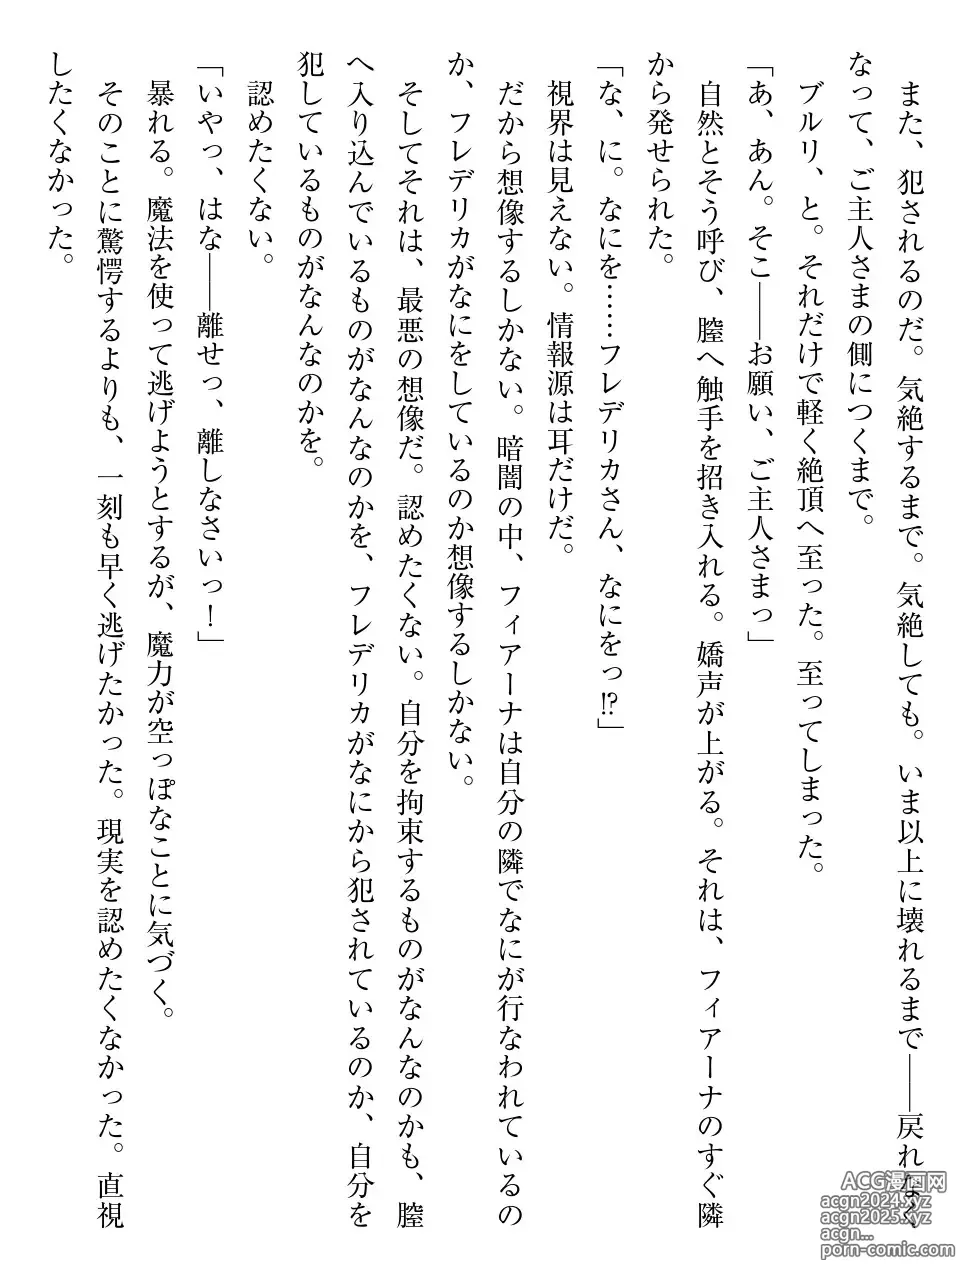 また、犯されるのだ。気絶するまで。気絶しても。いま以上に壊れるまで――戻れなく
なって、ご主人さまの側につくまで。
ブルリ、と。それだけで軽く絶頂へ至った。至ってしまった。
「あ、あん。そこ――お願い、ご主人さまっ」
自然とそう呼び、膣へ触手を招き入れる。嬌声が上がる。それは、フィアーナのすぐ隣
から発せられた。
「な、に。なにを……フレデリカさん、なにをっ!?」
視界は見えない。情報源は耳だけだ。
だから想像するしかない。暗闇の中、フィアーナは自分の隣でなにが行なわれているの
か、フレデリカがなにをしているのか想像するしかない。
そしてそれは、最悪の想像だ。認めたくない。自分を拘束するものがなんなのかも、膣
へ入り込んでいるものがなんなのかを、フレデリカがなにから犯されているのか、自分を
犯しているものがなんなのかを。
認めたくない。
「いやっ、はな――離せっ、離しなさいっ！」
暴れる。魔法を使って逃げようとするが、魔力が空っぽなことに気づく。
そのことに驚愕するよりも、一刻も早く逃げたかった。現実を認めたくなかった。直視
したくなかった。
ACG漫画网
acgn2024.xyz
acgn2025.xyz
acgn...
porn-comic.com